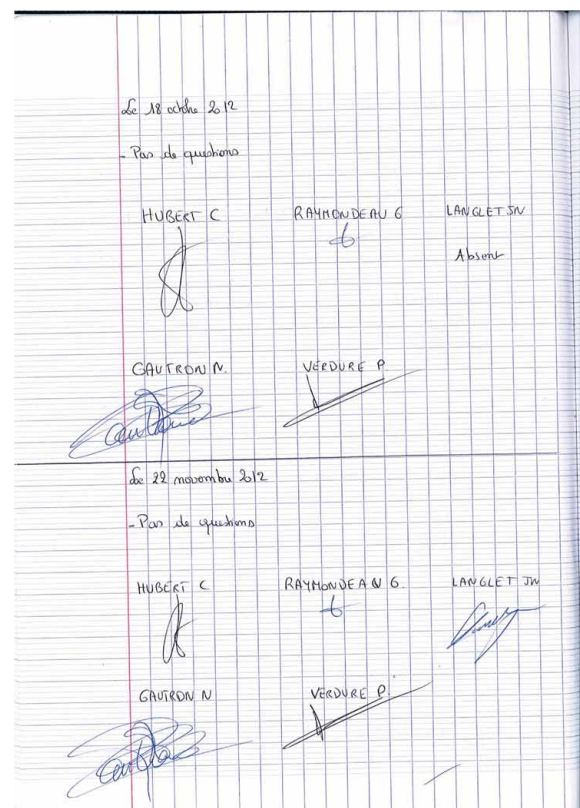 Le 18 octobre 2012
- Pas de questions
HUBERT C RAYMONDEAU G LANGLET JN
Absent
GAUTRON N. VERDURE P
Le 22 novembre 2012
- Pas de questions
HUBERT C RAYMONDEAU G. LANGLET JN
GAUTRON N VERDURE P.